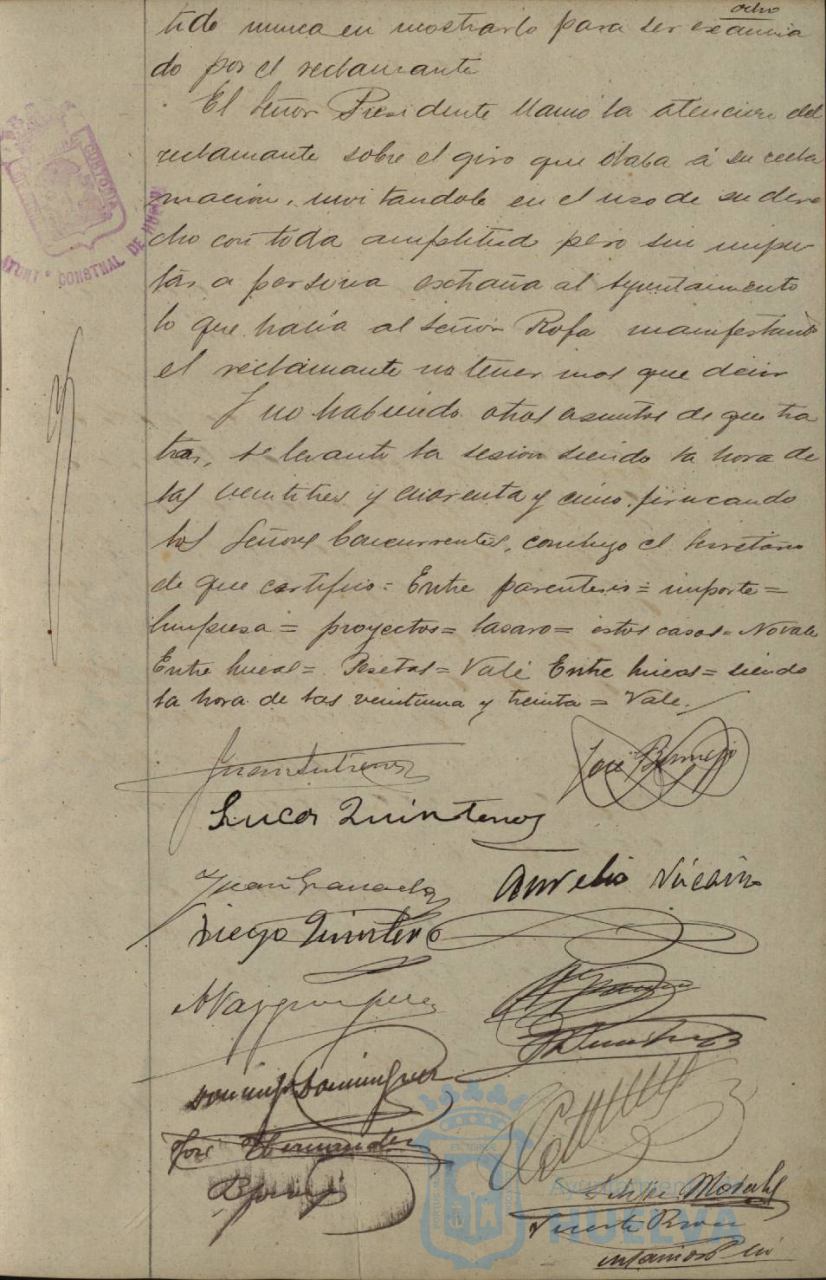 ocho
tido nunca en mostrarlo para ser examina
do por el reclamante
El Señor Presidente llamó la atencion del
reclamante sobre el giro que daba á su recla
macion, invitandole en el uso de su dere
cho con toda amplitud pero sin impu-
tar a persona extraña al Ayuntamiento
lo que hacia al Señor Rofa manifestando
el reclamante no tener mas que decir
Y no habiendo otros asuntos de que tra
tar, se levantó la sesion siendo la hora de
las veintitres y cuarenta y cinco, firmando
los Señores Concurrentes, conmigo el Secretario
de que certifico = Entre parentesis = importe =
limpieza = proyectos = = estos casos = No vale
Entre lineas = Pesetas = Vale Entre lineas = siendo
la hora de las veintiuna y treinta = Vale.
Juan Gutierrez
José Bermejo
Lucas Quintero
Juan Granado
Aurelio Vizcaino
Diego Quintero
Domingo Dominguez
José Hernandez
Morales
CUSTODIA
AYUNT CONSTNAL DE HUELVA
Ayuntamiento de
HUELVA